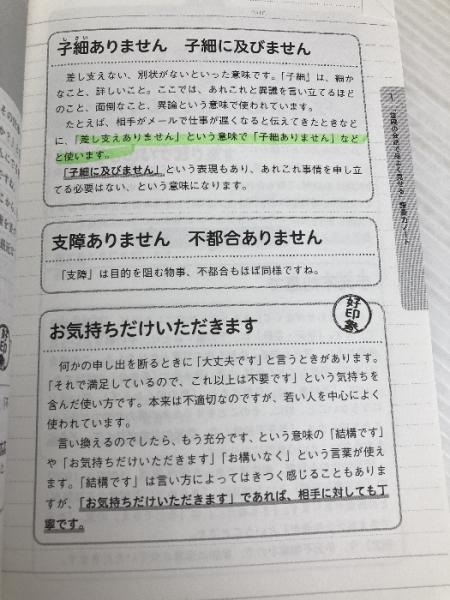 しさい
子細ありません　子細に及びません
差し支えない、別状がないといった意味です。「子細」は、細か
なこと、詳しいこと。ここでは、あれこれと異議を言い立てるほど
のこと、面倒なこと、異論という意味で使われています。
たとえば、相手がメールで仕事が遅くなると伝えてきたときなど
に、「差し支えありません」という意味で「子細ありません」など
と使います。
「子細に及びません」という表現もあり、あれこれ事情を申し立
てる必要はない、という意味になります。
支障ありません　不都合ありません
「支障」は目的を阻む物事、不都合もほぼ同様ですね。
好印象
お気持ちだけいただきます
何かの申し出を断るときに「大丈夫です」と言うときがあります。
「それで満足しているので、これ以上は不要です」という気持ちを
含んだ使い方です。本来は不適切なのですが、若い人を中心によく
使われています。
言い換えるのでしたら、もう充分です、という意味の「結構です」
や「お気持ちだけいただきます」「お構いなく」という言葉が使え
ます。「結構です」は言い方によってはきつく感じることもありま
すが、「お気持ちだけいただきます」であれば、相手に対しても丁
寧です。
好印象